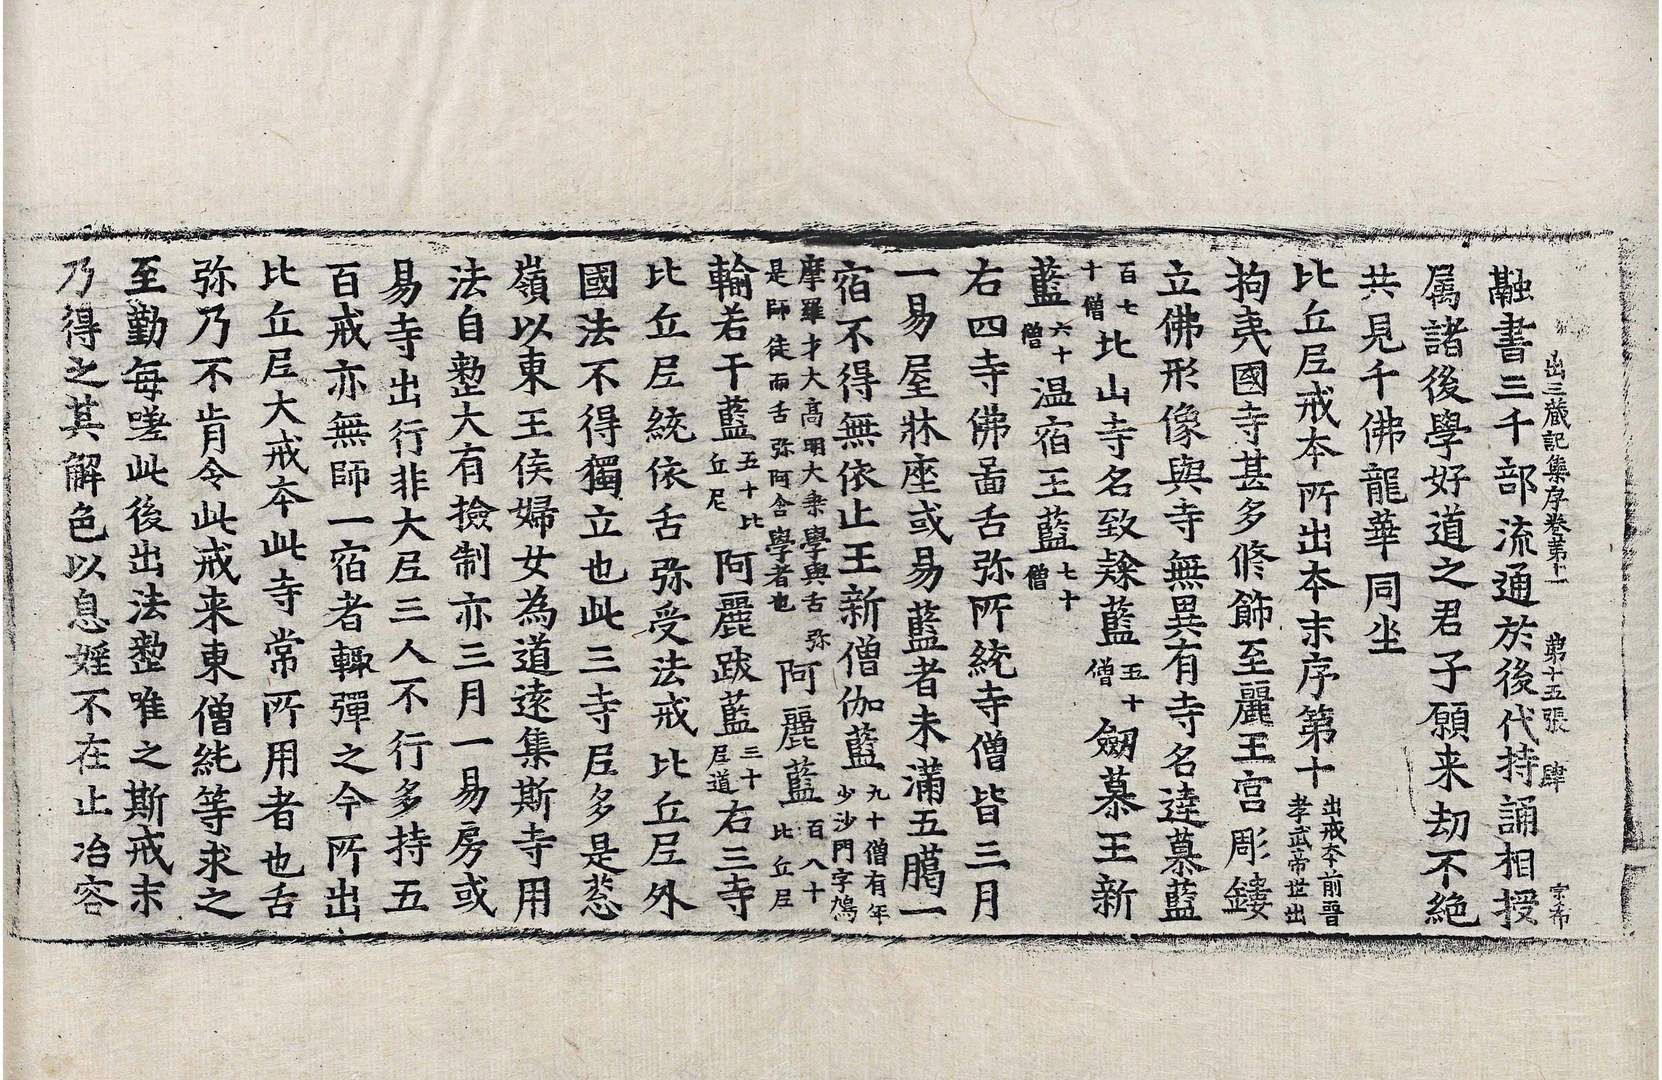 出三藏記集序卷第十一 第十五張 肆 宗布
融書三千部流通於後代持誦相授
属諸後學好道之君子願来劫不絶
共見千佛龍華同坐
比丘尼戒本所出本末序第十出戒夲前晋孝武帝世出
拘夷國寺甚多修飾至麗王宫彫鏤
立佛形像與寺無異有寺名達慕藍
百七十僧比山寺名致隸藍五十僧劒慕王新
藍六十僧温宿王藍七十僧
右四寺佛啚舌弥所統寺僧皆三月
一易屋牀座或易藍者未滿五臈一
宿不得無依止王新僧伽藍九十僧有年少沙門字鳩
摩羅才大髙明大乘學與舌弥是師徒而舌弥阿含學者也阿麗藍百八十比丘尼
輸若干藍五十比丘尼阿麗跋藍三十尼道右三寺
比丘尼統依舌弥受法戒比丘尼外
國法不得獨立也此三寺尼多是葱
嶺以東王侯婦女為道遠集斯寺用
法自整大有撿制亦三月一易房或
易寺出行非大尼三人不行多持五
百戒亦無師一宿者輙彈之今所出
比丘尼大戒夲此寺常所用者也舌
弥乃不肯令此戒来東僧純等求之
至勤每嗟此後出法整唯之斯戒末
乃得之其解色以息婬不在止冶容